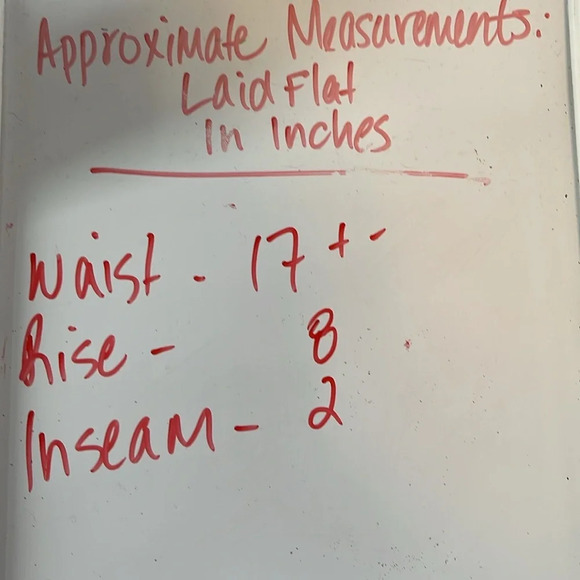 Approximate Measurements:
Laid Flat
In Inches
Waist - 17 + -
Rise - 8
Inseam - 2